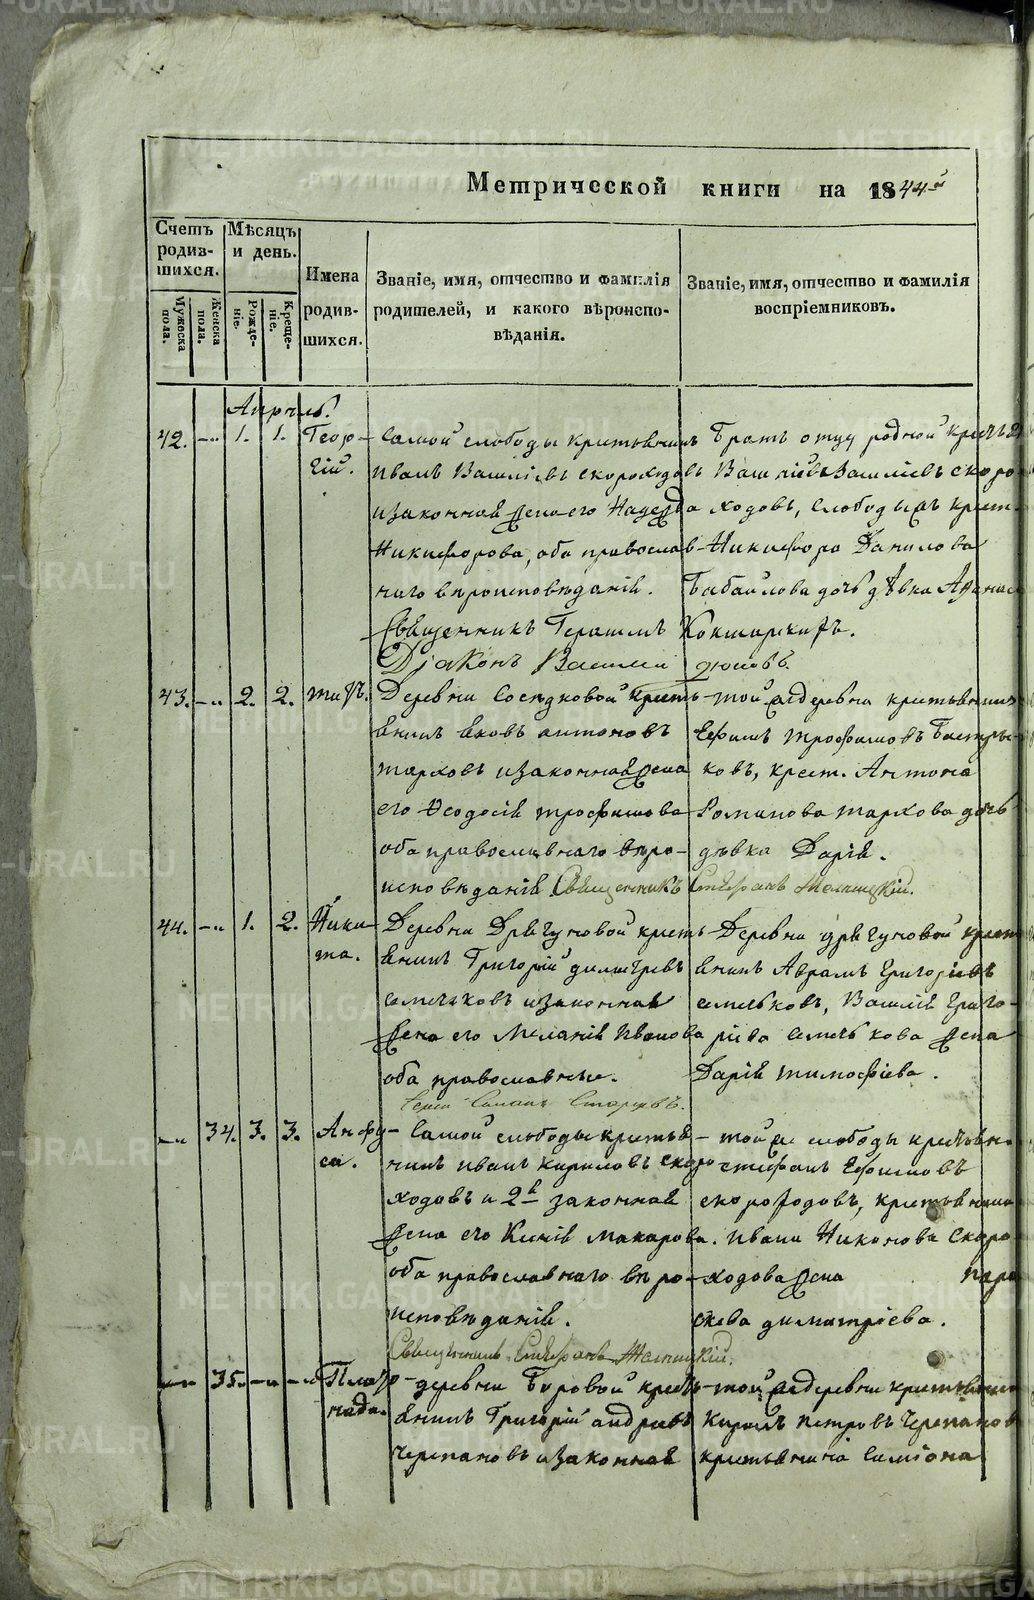 Метрической книги на 1844-й
Счетъ родив-шихся.
Мужеска пола.
Женска пола.
Мѣсяцъ и день.
Рожде-ніе.
Креще-ніе.
Имена родив-шихся.
Званіе, имя, отчество и фамилія родителей, и какого вѣроиспо-вѣданія.
Званіе, имя, отчество и фамилія воспріемниковъ.
Апрѣль.
42. 1. 1. Геор-гій.
Самой слободы крестьянинъ
Иванъ Василіевъ Скороходовъ
и законная жена его Надежда
Никифорова, оба православ-
наго вѣроисповѣданія.
Братъ отцу родной
Василіевъ Скоро-
ходовъ, слободы
Никифора Данилова
Бабайлова дочь дѣвка
Священникъ Герасимъ Кокшарскій.
Діаконъ Василій
43. 2. 2. Титъ.
Деревни Сосѣдковой кресть-
янинъ Яковъ Антоновъ
Тарховъ и законная жена
его Ѳеодосія Трофимова
оба православнаго вѣро-
исповѣданія
той же деревни крестьянинъ
Ефимъ Трофимовъ
ковъ, крест. Антона
Романова Тархова дочь
дѣвка Дарія.
Священникъ Стефанъ
44. 1. 2. Ники-та.
Деревни Дрягуновой кресть-
янинъ Григорій Димитріевъ
Семьяковъ и законная
жена его Меланія Иванова
оба православные.
Деревни Дрягуновой крест
янинъ Аврамъ Григоріевъ
Василія Григо-
ріева жена
Дарія Тимофіева.
34. 3. 3. Анфу-са.
Самой слободы крестья-
нинъ Иванъ Кириловъ Скоро
ходовъ и 2й законная
жена его Ксенія Макарова.
оба православнаго вѣро-
исповѣданія.
той же слободы крестьяни
Стефанъ Ефимовъ
Скороходовъ, крестьянина
Ивана Никонова Скоро
ходова жена Пара
скева Димитріева.
Священникъ Стефанъ
35.
деревни Боровой кресть-
янинъ Григорій Андреевъ
Черепановъ и законная
той же деревни крестьянинъ
Кирилъ Петровъ Черепановъ
крестьянина Симіона
METRIKI.GASO-URAL.RU